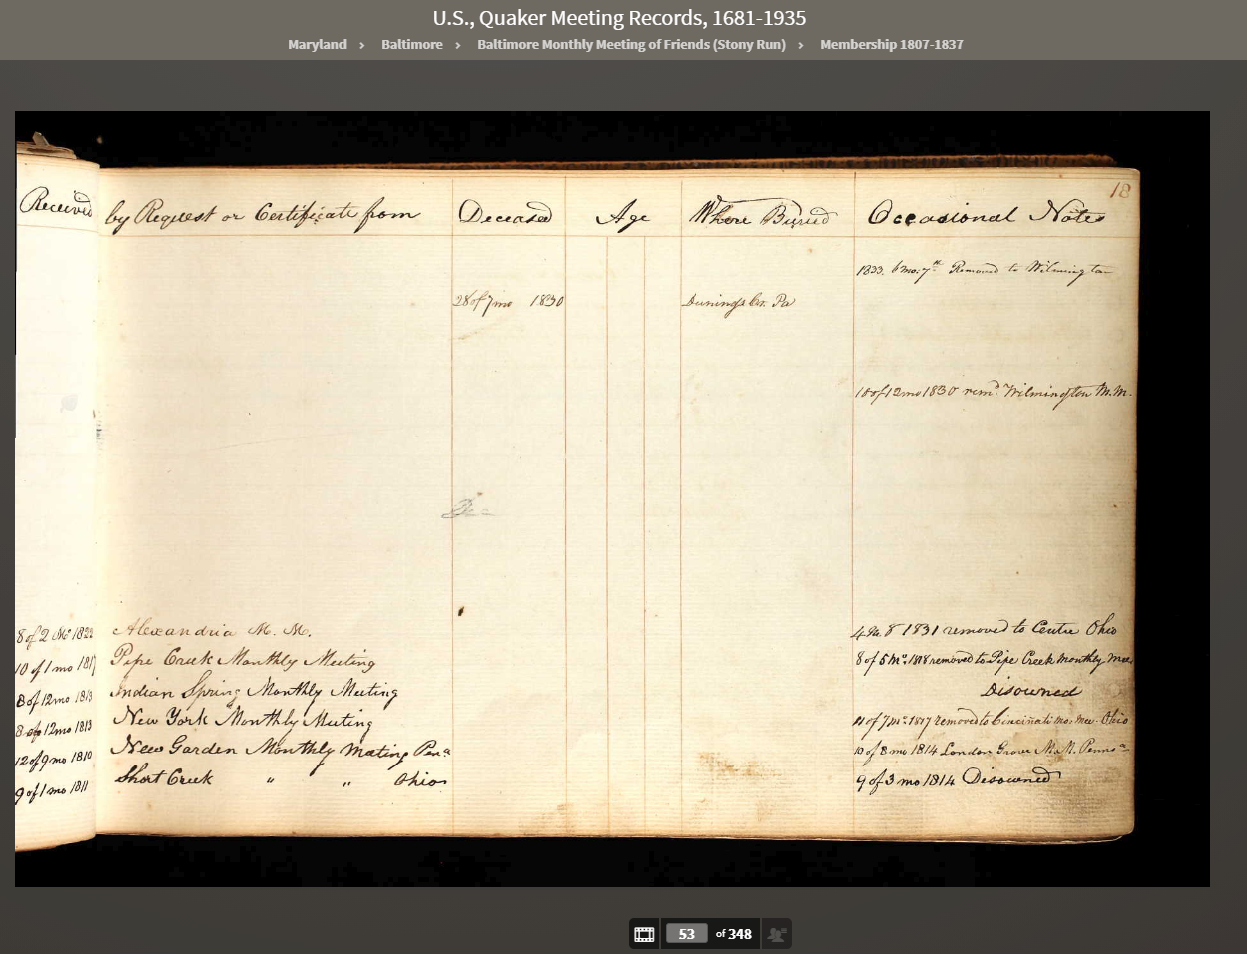 U.S., Quaker Meeting Records, 1681-1935
Maryland > Baltimore > Baltimore Monthly Meeting of Friends (Stony Run) > Membership 1807-1837
18
Received by Request or Certificate from Deceased Age Where Buried Occasional Notes
1833. 6mo. 7th Removed to Wilmington
28 of 7mo 1830 Dunings Cr. Pa
10 of 12mo 1830 remd Wilmington M.M.
Dec
8 of 2 Mo 1822 Alexandria M. M. 1831 removed to Centre Ohio
10 of 1 mo 1817 Pipe Creek Monthly Meeting 8 of 5 Mo. 1818 removed to Pipe Creek Monthly Mee
8 of 12mo 1813 Indian Spring Monthly Meeting Disowned
8 of 12mo 1813 New York Monthly Meeting 11 of 7 mo. 1817 removed to Cincinnati Mo: Mee. Ohio
12 of 9mo 1810 New Garden Monthly Meting Pena 10 of 8 mo 1814 London Grove M.M. Penna
9 of 1 mo 1811 Short Creek " " Ohio 9 of 3 mo 1814 Disowned
53 of 348